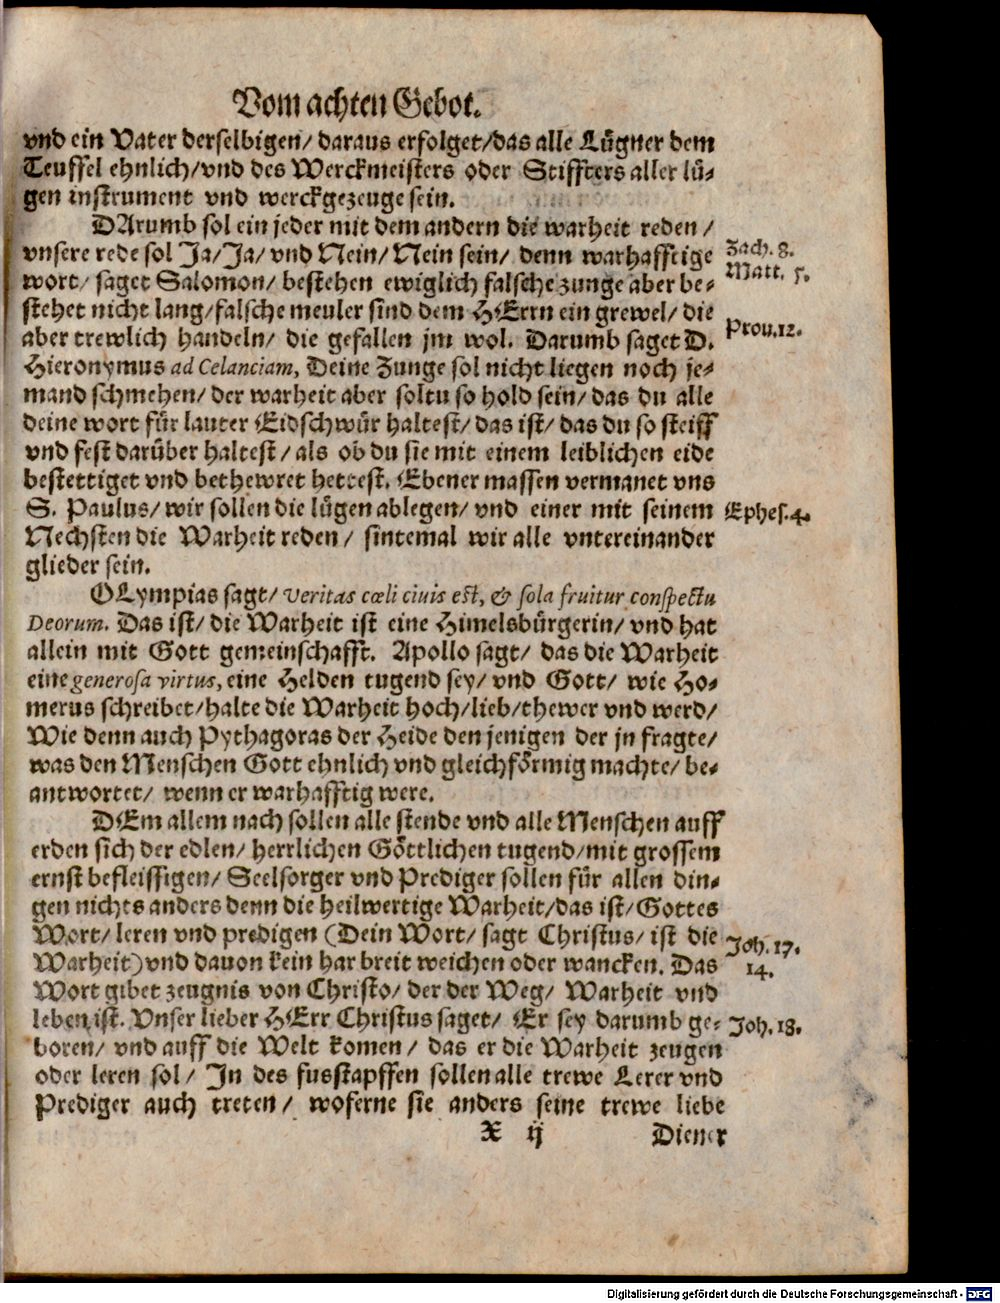 Vom achten Gebot.
vnd ein Vater derselbigen/ daraus erfolget/das alle Lügner dem
Teuffel ehnlich/vnd des Werckmeisters oder Stiffters aller lü-
gen instrument vnd werckgezeuge sein.
DArumb sol ein jeder mit dem andern die warheit reden /
vnsere rede sol Ja/Ja/ vnd Nein/ Nein sein/ denn warhafftige
Zach. 8.
Matt. 5.
wort/ saget Salomon/ bestehen ewiglich falsche zunge aber be-
stehet nicht lang/falsche meuler sind dem HErrn ein grewel/ die
aber trewlich handeln/ die gefallen jm wol. Darumb saget D.
Prou.12.
Hieronymus ad Celanciam, Deine Zunge sol nicht liegen noch je-
mand schmehen/ der warheit aber soltu so hold sein/ das du alle
deine wort für lauter Eidschwür haltest/ das ist/ das du so steiff
vnd fest darüber haltest/ als ob du sie mit einem leiblichen eide
bestettiget vnd bethewret hettest. Ebener massen vermanet vns
S. Paulus/ wir sollen die lügen ablegen/ vnd einer mit seinem
Ephes.4.
Nechsten die Warheit reden/ sintemal wir alle vntereinander
glieder sein.
OLympias sagt/ Veritas cœli ciuis est, & sola fruitur conspectu
Deorum. Das ist/ die Warheit ist eine Himelsbürgerin/ vnd hat
allein mit Gott gemeinschafft. Apollo sagt/ das die Warheit
eine generosa virtus, eine Helden tugend sey/ vnd Gott/ wie Ho-
merus schreibet/halte die Warheit hoch/lieb/thewer vnd werd/
Wie denn auch Pythagoras der Heide den jenigen der jn fragte/
was den Menschen Gott ehnlich vnd gleichförmig machte/ be-
antwortet/ wenn er warhafftig were.
DEm allem nach sollen alle stende vnd alle Menschen auff
erden sich der edlen/ herrlichen Göttlichen tugend/mit grossem
ernst befleissigen/ Seelsorger vnd Prediger sollen für allen din-
gen nichts anders denn die heilwertige Warheit/das ist/Gottes
Wort/ leren vnd predigen (Dein Wort/ sagt Christus/ ist die
Joh. 17.
14.
Warheit) vnd dauon kein har breit weichen oder wancken. Das
Wort gibet zeugnis von Christo/ der der Weg/ Warheit vnd
leben ist. Vnser lieber HErr Christus saget/ Er sey darumb ge-
Joh. 18.
boren/ vnd auff die Welt komen/ das er die Warheit zeugen
oder leren sol/ In des fusstapffen sollen alle trewe Lerer vnd
Prediger auch treten/ woferne sie anders seine trewe liebe
X ij
Diener
Digitalisierung gefördert durch die Deutsche Forschungsgemeinschaft - DFG